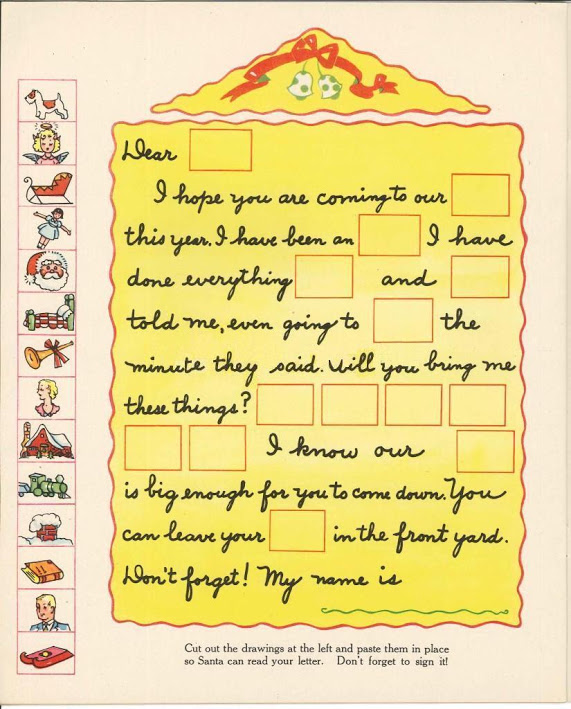 Dear
I hope you are coming to our
this year. I have been an I have
done everything and
told me, even going to the
minute they said. Will you bring me
these things?
I know our
is big enough for you to come down. You
can leave your in the front yard.
Don't forget! My name is
Cut out the drawings at the left and paste them in place
so Santa can read your letter. Don't forget to sign it!